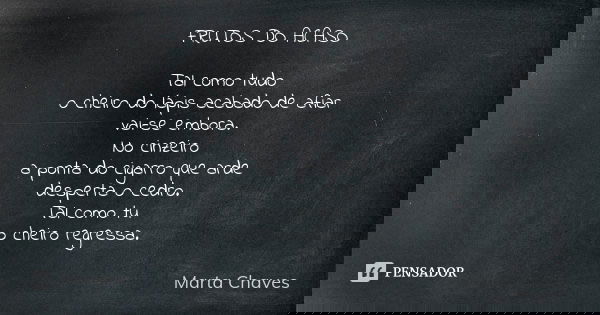 FRUTOS DO ACASO
Tal como tudo
o cheiro do lápis acabado de afiar
vai-se embora.
No cinzeiro
a ponta do cigarro que arde
desperta o cedro.
Tal como tu
o cheiro regressa.
Marta Chaves
PENSADOR